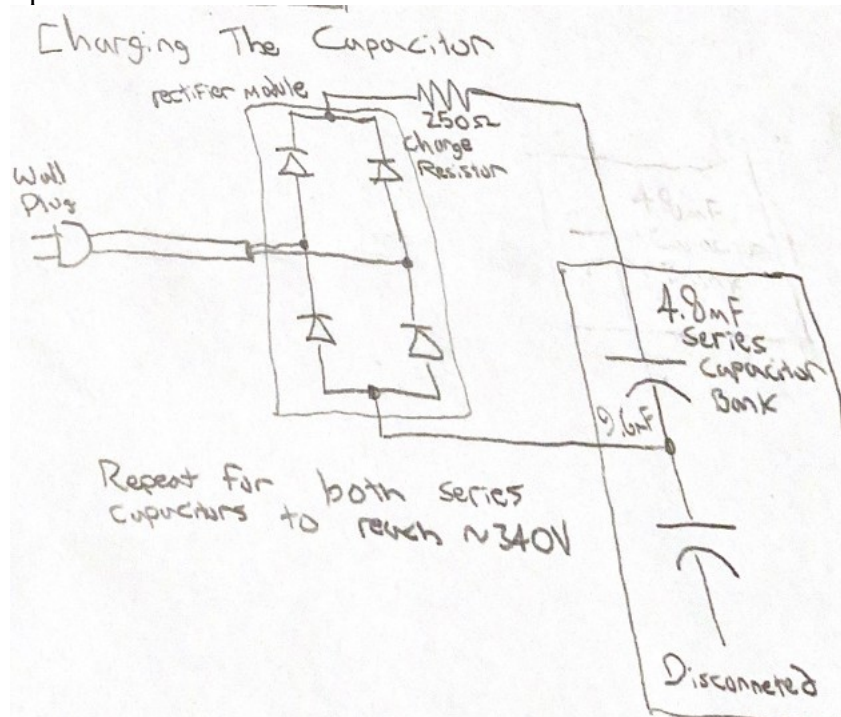 Charging The Capacitor
rectifier module
250Ω
Charge
Resistor
Wall
Plug
4.8mF
Series
Capacitor
Bank
9.6mF
Repeat for both series
capacitors to reach ~340V
Disconneted